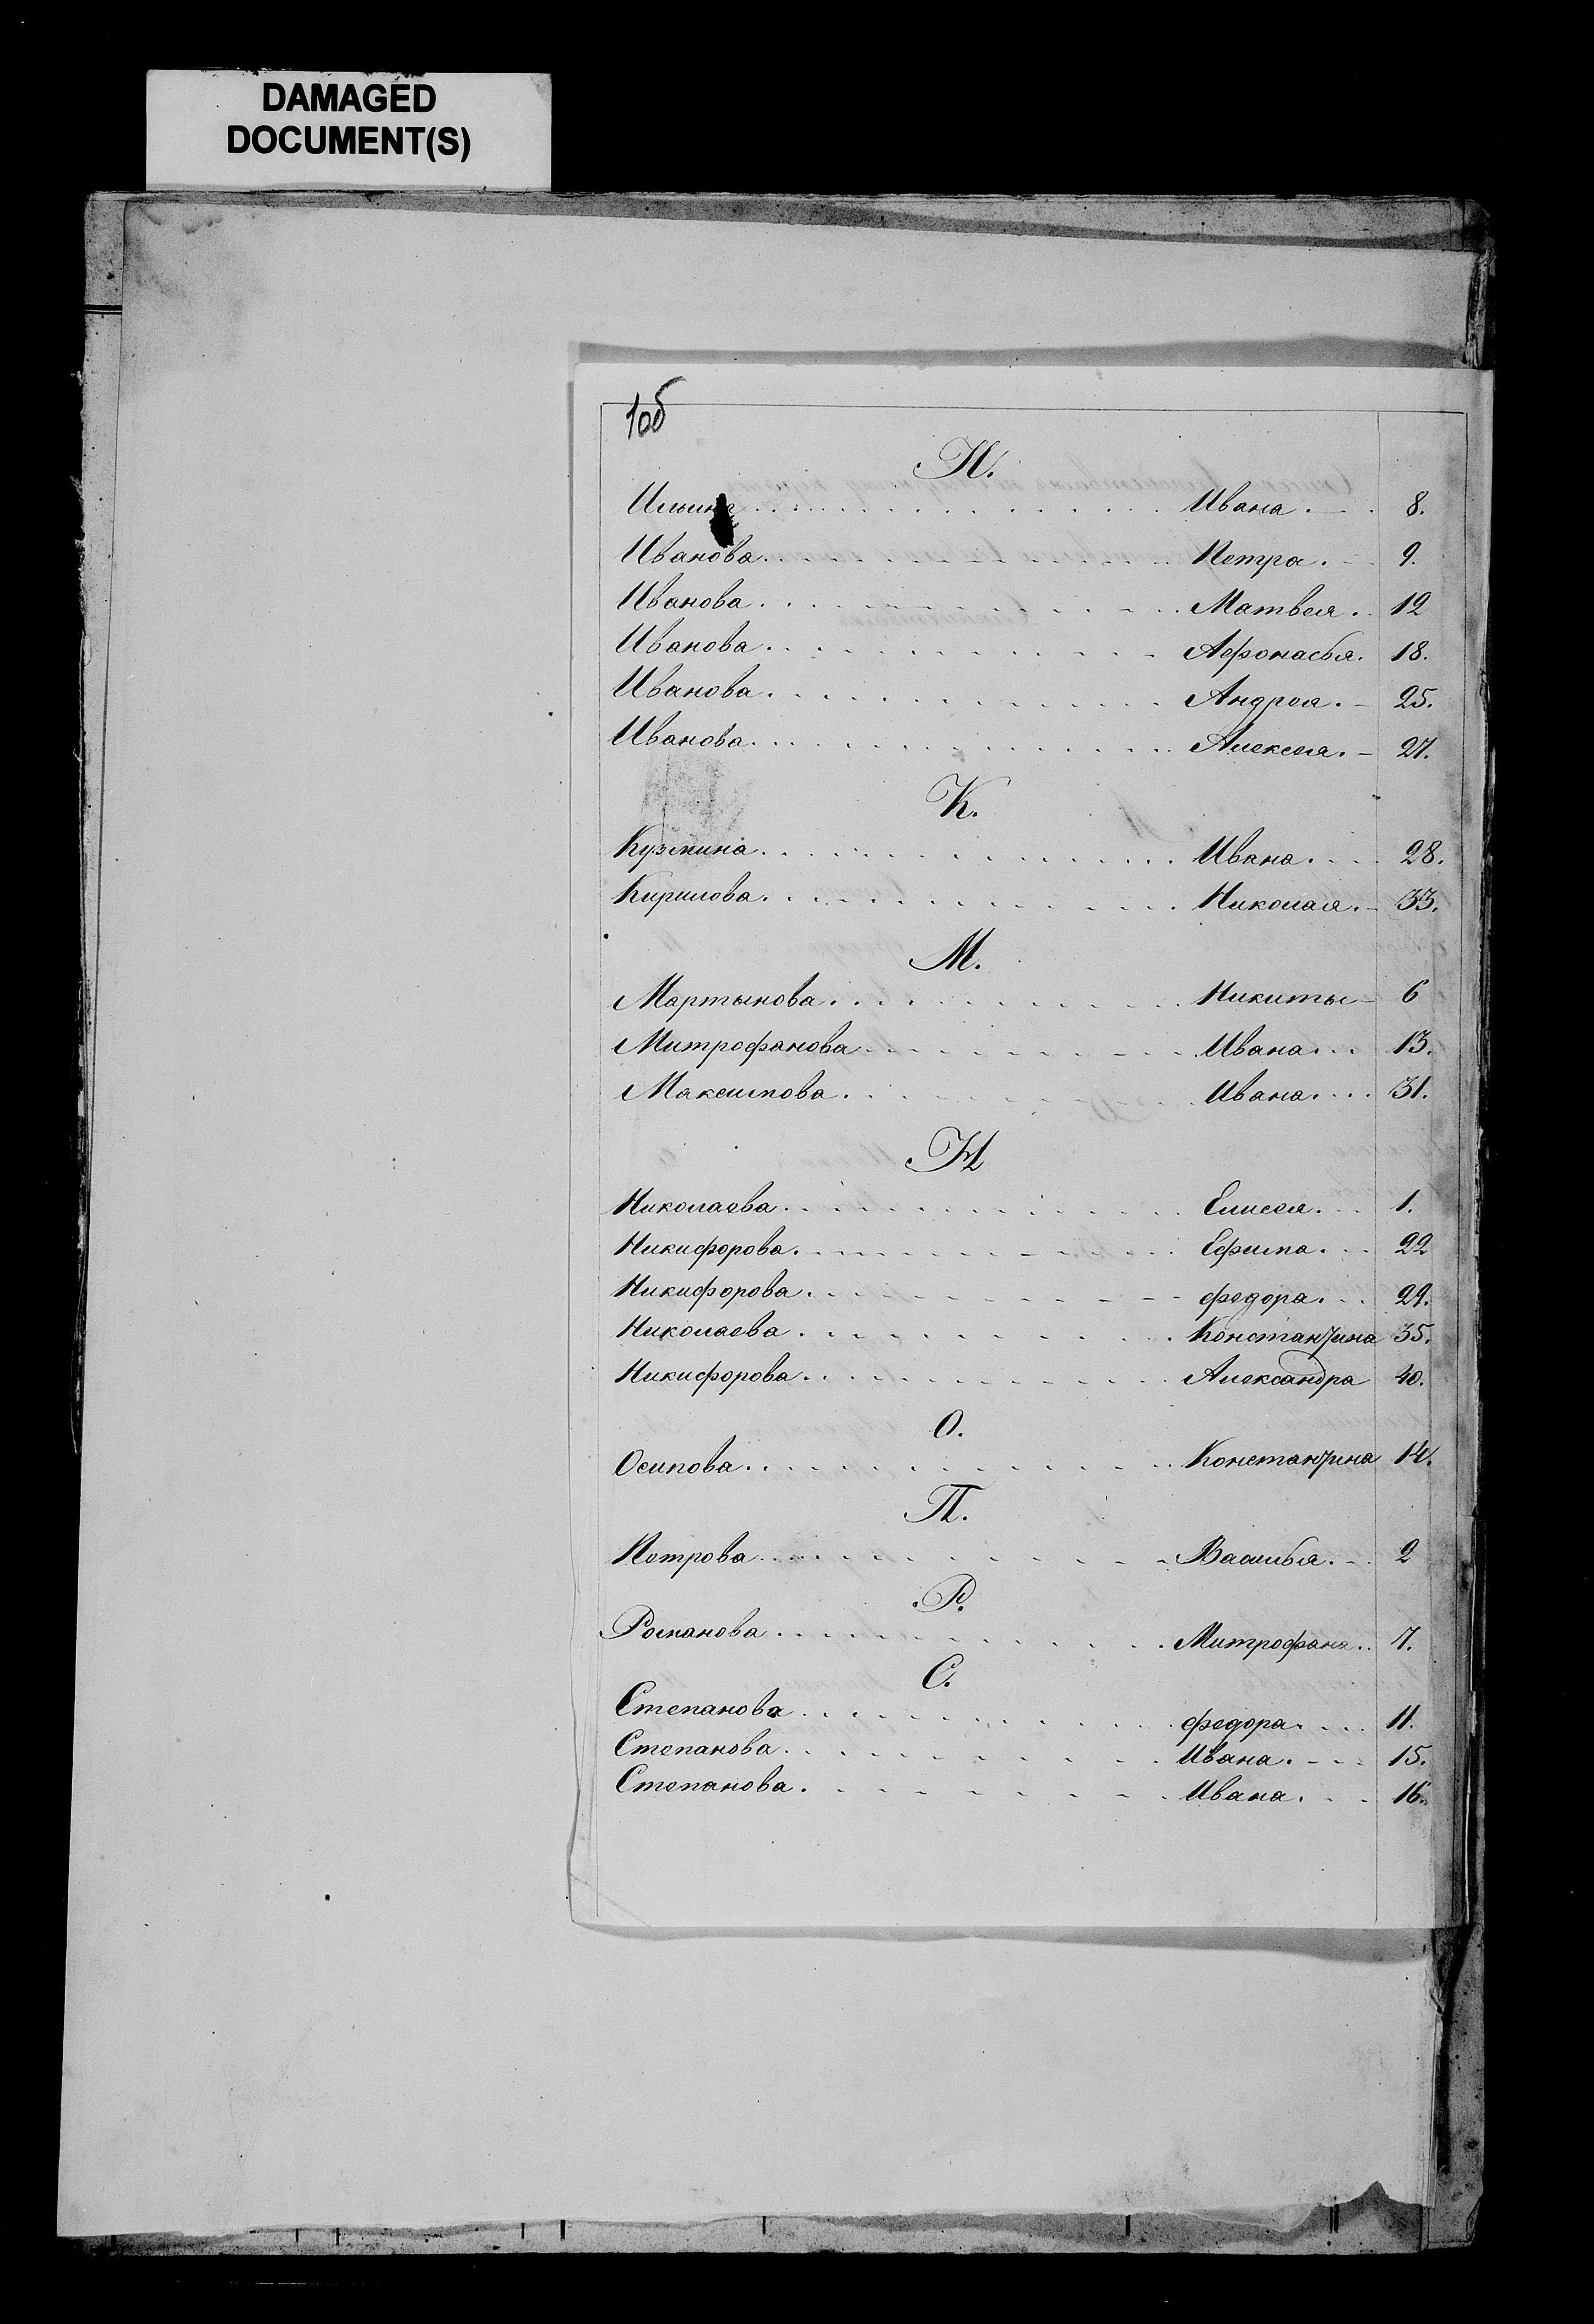 DAMAGED
DOCUMENT(S)
1об
И.
Ильина . . . . Ивана . . 8.
Иванова . . . . Петра . 9.
Иванова . . . . Матвея . 12
Иванова . . . . Афонасья . 18.
Иванова . . . . Андрея . 25.
Иванова . . . . Алексея . 27.
К.
Кузмина . . . . Ивана . . 28.
Кирилова . . . . Николая . 33.
М.
Мартынова . . . . Никиты 6
Митрофанова . . . . Ивана . . 13.
Максимова . . . . Ивана . . 31.
Н
Николаева . . . . Елисея . . 1.
Никифорова . . . . Ефима . . 22
Никифорова . . . . Федора . . 29.
Николаева . . . . Константина 35.
Никифорова . . . . Александра 40.
О.
Осипова . . . . Константина 14.
П.
Петрова . . . . Василья . . 2
Р.
Романова . . . . Митрофана . . 7.
С.
Степанова . . . . Федора . . 11.
Степанова . . . . Ивана . . 15.
Степанова . . . . Ивана . . 16.